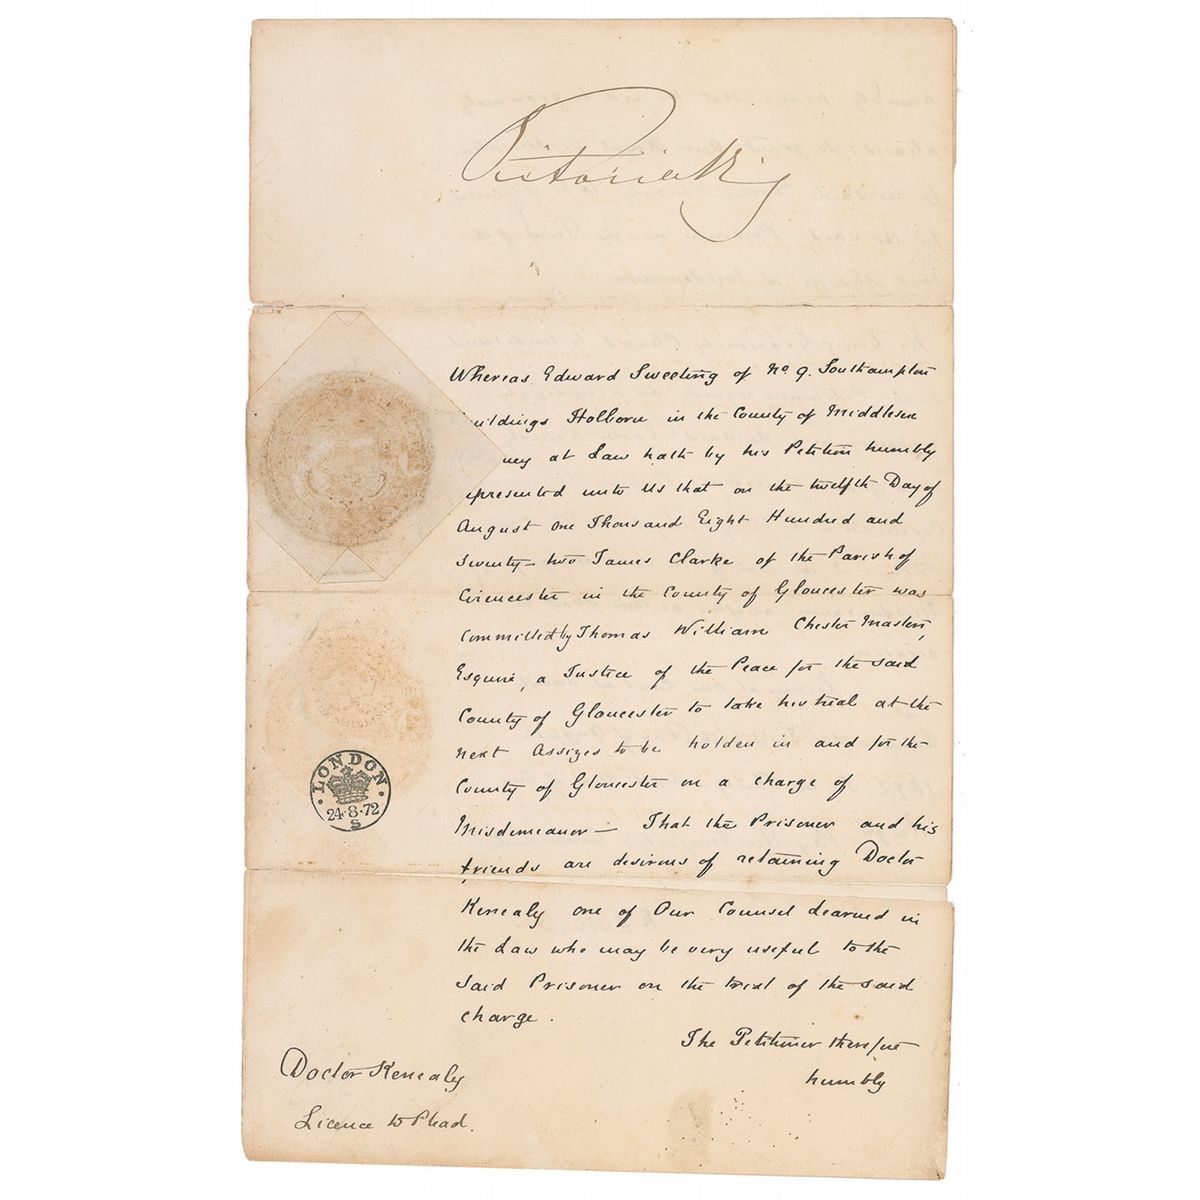 Victoria Rg
Whereas Edward Sweeting of No 9. Southampton
uildings Holborn in the County of Middlesex
ney at Law hath by his Petition humbly
epresented unto Us that on the twelfth Day of
August One Thousand Eight Hundred and
Seventy-two James Clarke of the Parish of
Cirencester in the County of Gloucester was
Committed by Thomas William Chester Master,
Esquire, a Justice of the Peace for the said
County of Gloucester to take his trial at the
next Assizes to be holden in and for the
County of Gloucester on a charge of
Misdemeanor — That the Prisoner and his
friends are desirous of retaining Doctor
Kenealy one of Our Counsel Learned in
the Law who may be very useful to the
said Prisoner on the trial of the said
charge.
The Petitioner therefore
humbly
LONDON
24·8·72
S
Doctor Kenealy
Licence to Plead.